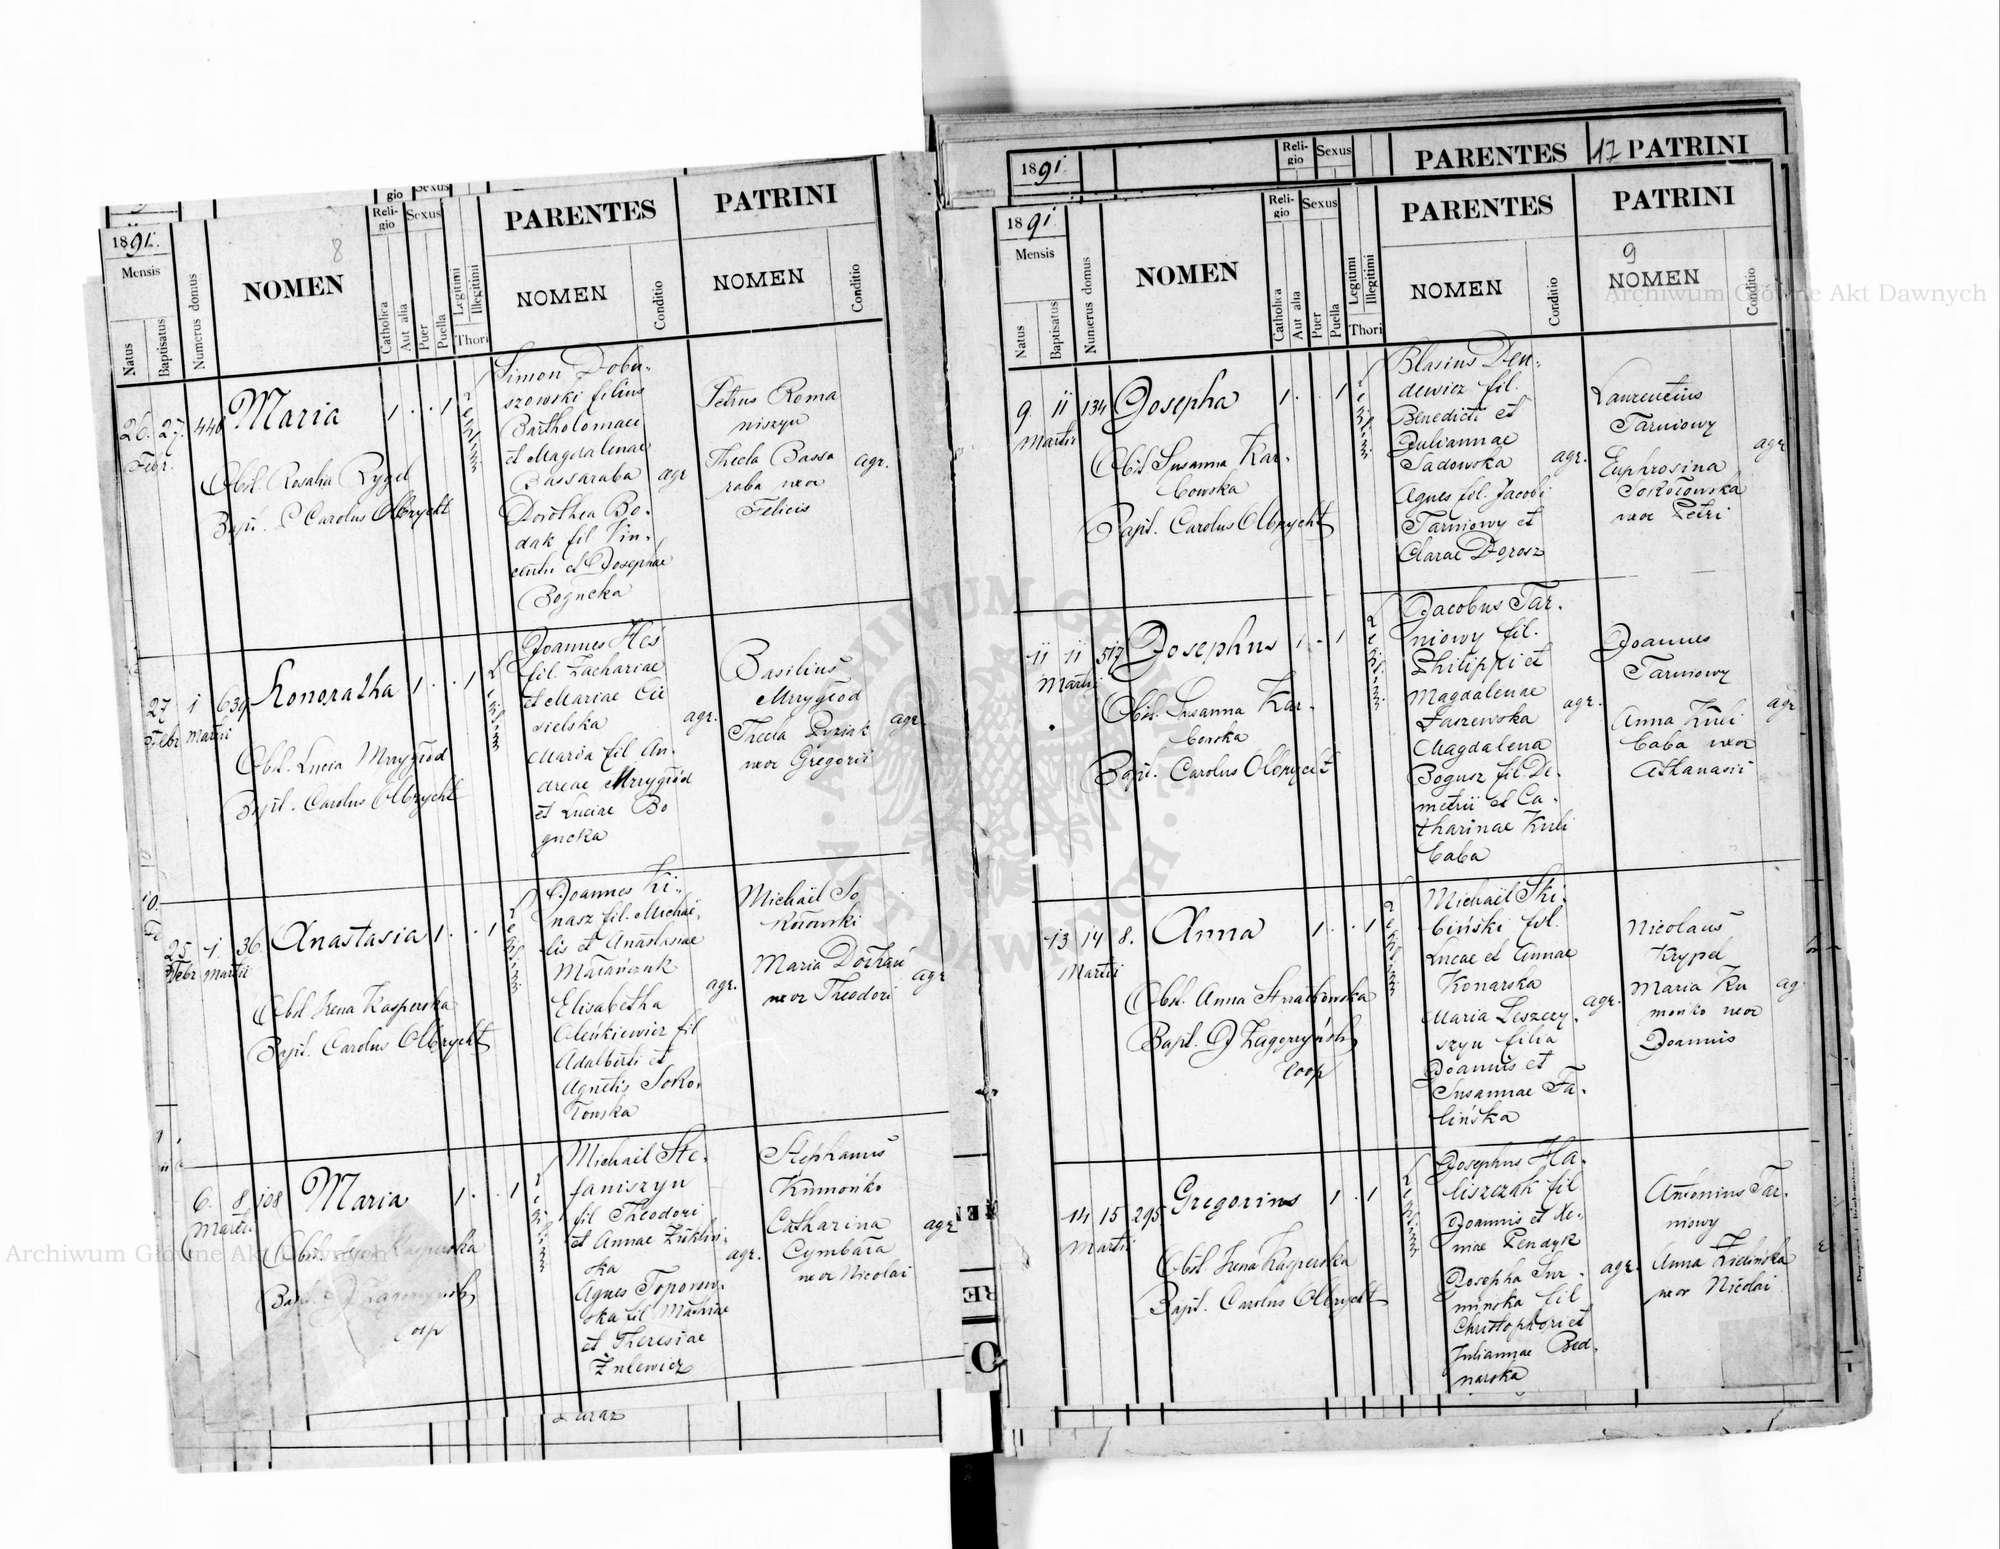 1891.
Mensis
Natus
Baptisatus
Numerus domus
NOMEN
8
Religio
Catholica
Aut alia
Sexus
Puer
Puella
Legitimi
Illegitimi
Thori
PARENTES
NOMEN
Conditio
PATRINI
NOMEN
Conditio
26. 27. 446
Febr.
Maria
1 . . 1
Obst. Rosalia Rygel
Bapt. C Carolus Olbrycht
Legitimi
Simon Dobu-
szowski filius
Bartholomaei
et Magdalenae
Bassaraba
Dorothea Bo-
dak fil Vin-
centii et Josephae
Bogucka
agr
Petrus Roma
niszyn
Thecla Bassa
raba uxor
Felicis
agr.
27 1 639
Febr Martii
Honoratha
1 . . 1
Obst. Lucia Mrzygłód
Bapt. Carolus Olbrycht
Legitimi
Joannes Heś
fil. Zachariae
et Mariae Cie
sielska
Maria fil An-
dreae Mrzygłód
et Luciae Bo
gucka
agr.
Basilius
Mrzygłód
Thecla Pyziak
uxor Gregorii
agr.
25 1. 36.
Febr Martii
Anastasia
1 . . 1
Obst Irena Kasperska
Bapt. Carolus Olbrycht
Legitimi
Joannes Ki-
nasz fil. Michaë-
lis et Anastasiae
Matańczak
Elisabetha
Oleńkiewicz fil
Adalberti et
Agnetis Soko-
łowska
agr.
Michaël So
kołowski
Maria Dołhań
uxor Theodori
agr
6. 8 108
Martii
Maria
1 . . 1
Obst. Kasperska
Bapt. J Zagorzyński
Coop
Legitimi
Michaël Ste-
faniszyn
fil Theodori
et Annae Zukliń-
ska
Agnes Toporow-
ska fil Mathiae
et Theresiae
Żulewicz
agr.
Stephanus
Kumońko
Catharina
Cymbała
uxor Nicolai
agr
1891.
Religio
Sexus
PARENTES
17 PATRINI
1891.
Mensis
Natus
Baptisatus
Numerus domus
NOMEN
Religio
Catholica
Aut alia
Sexus
Puer
Puella
Legitimi
Illegitimi
Thori
PARENTES
NOMEN
Conditio
PATRINI
9
NOMEN
Conditio
9 11 134
Martii
Josepha
1 . . 1
Obst Susanna Kar-
bowska
Bapt. Carolus Olbrycht
Legitimi
Blasius Den-
dewicz fil.
Benedicti et
Juliannae
Sadowska
Agnes fil. Jacobi
Tarniowy et
Clarae Dorosz
agr.
Laurentius
Tarniowy
Euphrosina
Sokołowska
uxor Petri
agr
11 11 517
Martii
Josephus
1 . . 1
Obst. Susanna Kar-
bowska
Bapt. Carolus Olbrycht
Legitimi
Jacobus Tar-
niowy fil.
Philippi et
Magdalenae
Łaszewska
Magdalena
Bogusz fil. De-
metrii et Ca-
tharinae Kuli
baba
agr.
Joannes
Tarniowy
Anna Kuli
baba uxor
Athanasii
agr
13 14 8.
Martii
Anna
1 . . 1
Obst. Anna Strzałkowska
Bapt. J Zagorzyński
Coop
Legitimi
Michaël Ski-
biński fil.
Lucae et Annae
Konarska
Maria Leszczy-
szyn filia
Joannis et
Susannae Ta-
lińska
agr.
Nicolaus
Krypel
Maria Ku
mońko uxor
Joannis
agr.
14 15 295
Martii
Gregorius
1 . 1
Obst. Irena Kasperska
Bapt. Carolus Olbrycht
Legitimi
Josephus Ha-
liszczak fil
Joannis et Xe-
niae Pendyk
Josepha Sur-
mińska fil
Christophori et
Juliannae Bed-
narska
agr.
Antonius Tar-
niowy
Anna Zielińska
uxor Nicolai
Archiwum Główne Akt Dawnych
Archiwum Główne Akt Dawnych
ARCHIWUM GŁÓWNE AKT DAWNYCH